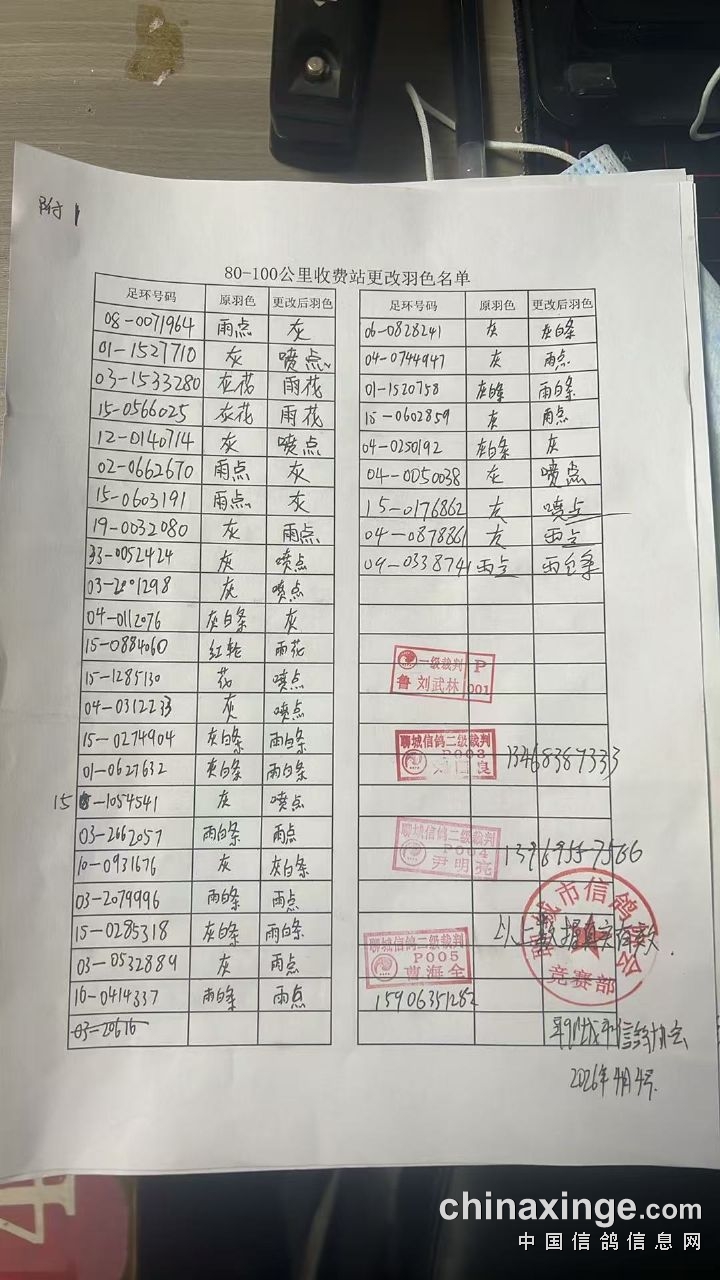 附1
80-100公里收费站更改羽色名单
足环号码 原羽色 更改后羽色
08-0071964 雨点 灰
01-1527710 灰 喷点
03-1533280 灰花 雨花
15-0566025 灰花 雨花
12-0140714 灰 喷点
02-0662670 雨点 灰
15-0603191 雨点 灰
19-0032080 灰 雨点
33-0052424 灰 喷点
03-2001298 灰 喷点
04-0112076 灰白条 灰
15-0884060 红轮 雨花
15-1285130 花 喷点
04-0312233 灰 喷点
15-0274904 灰白条 雨白条
01-0627632 灰白条 雨白条
15-1054541 灰 喷点
03-2662057 雨白条 雨点
10-0931676 灰 灰白条
03-2079996 雨白条 雨点
15-0285318 灰白条 雨白条
03-0532889 灰 雨点
10-0414337 雨白条 雨点
03-20616
足环号码 原羽色 更改后羽色
06-0828241 灰 灰白条
04-0744947 灰 雨点
01-1520758 灰白条 雨白条
15-0602859 灰 雨点
04-0250192 灰白条 灰
04-0050038 灰 喷点
15-0176862 灰 喷点
04-0878861 灰 雨点
09-0338741 雨点 雨白条
一级裁判 P
鲁 刘武林 001
聊城信鸽二级裁判
P003
13468387333
聊城信鸽二级裁判
P004
尹明亮
13969557566
聊城市信鸽协会
竞赛部
以上数据真实有效.
聊城信鸽二级裁判
P005
曹海全
15906351282
聊城市信鸽协会
2026年4月4号.
chinaxinge.com
中国信鸽信息网